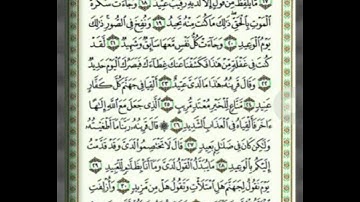 مَّا يَلْفِظُ مِن قَوْلٍ إِلَّا لَدَيْهِ رَقِيبٌ عَتِيدٌ ١٨ وَجَاءَتْ سَكْرَةُ
الْمَوْتِ بِالْحَقِّ ذَٰلِكَ مَا كُنتَ مِنْهُ تَحِيدُ ١٩ وَنُفِخَ فِي الصُّورِ ذَٰلِكَ
يَوْمُ الْوَعِيدِ ٢٠ وَجَاءَتْ كُلُّ نَفْسٍ مَّعَهَا سَائِقٌ وَشَهِيدٌ ٢١ لَّقَدْ
كُنتَ فِي غَفْلَةٍ مِّنْ هَٰذَا فَكَشَفْنَا عَنكَ غِطَاءَكَ فَبَصَرُكَ الْيَوْمَ حَدِيدٌ
٢٢ وَقَالَ قَرِينُهُ هَٰذَا مَا لَدَيَّ عَتِيدٌ ٢٣ أَلْقِيَا فِي جَهَنَّمَ كُلَّ كَفَّارٍ
عَنِيدٍ ٢٤ مَّنَّاعٍ لِّلْخَيْرِ مُعْتَدٍ مُّرِيبٍ ٢٥ الَّذِي جَعَلَ مَعَ اللَّهِ إِلَٰهًا
آخَرَ فَأَلْقِيَاهُ فِي الْعَذَابِ الشَّدِيدِ ٢٦ قَالَ قَرِينُهُ رَبَّنَا مَا أَطْغَيْتُهُ
وَلَٰكِن كَانَ فِي ضَلَالٍ بَعِيدٍ ٢٧ قَالَ لَا تَخْتَصِمُوا لَدَيَّ وَقَدْ قَدَّمْتُ
إِلَيْكُم بِالْوَعِيدِ ٢٨ مَا يُبَدَّلُ الْقَوْلُ لَدَيَّ وَمَا أَنَا بِظَلَّامٍ لِّلْعَبِيدِ ٢٩
يَوْمَ نَقُولُ لِجَهَنَّمَ هَلِ امْتَلَأْتِ وَتَقُولُ هَلْ مِن مَّزِيدٍ ٣٠ وَأُزْلِفَتِ